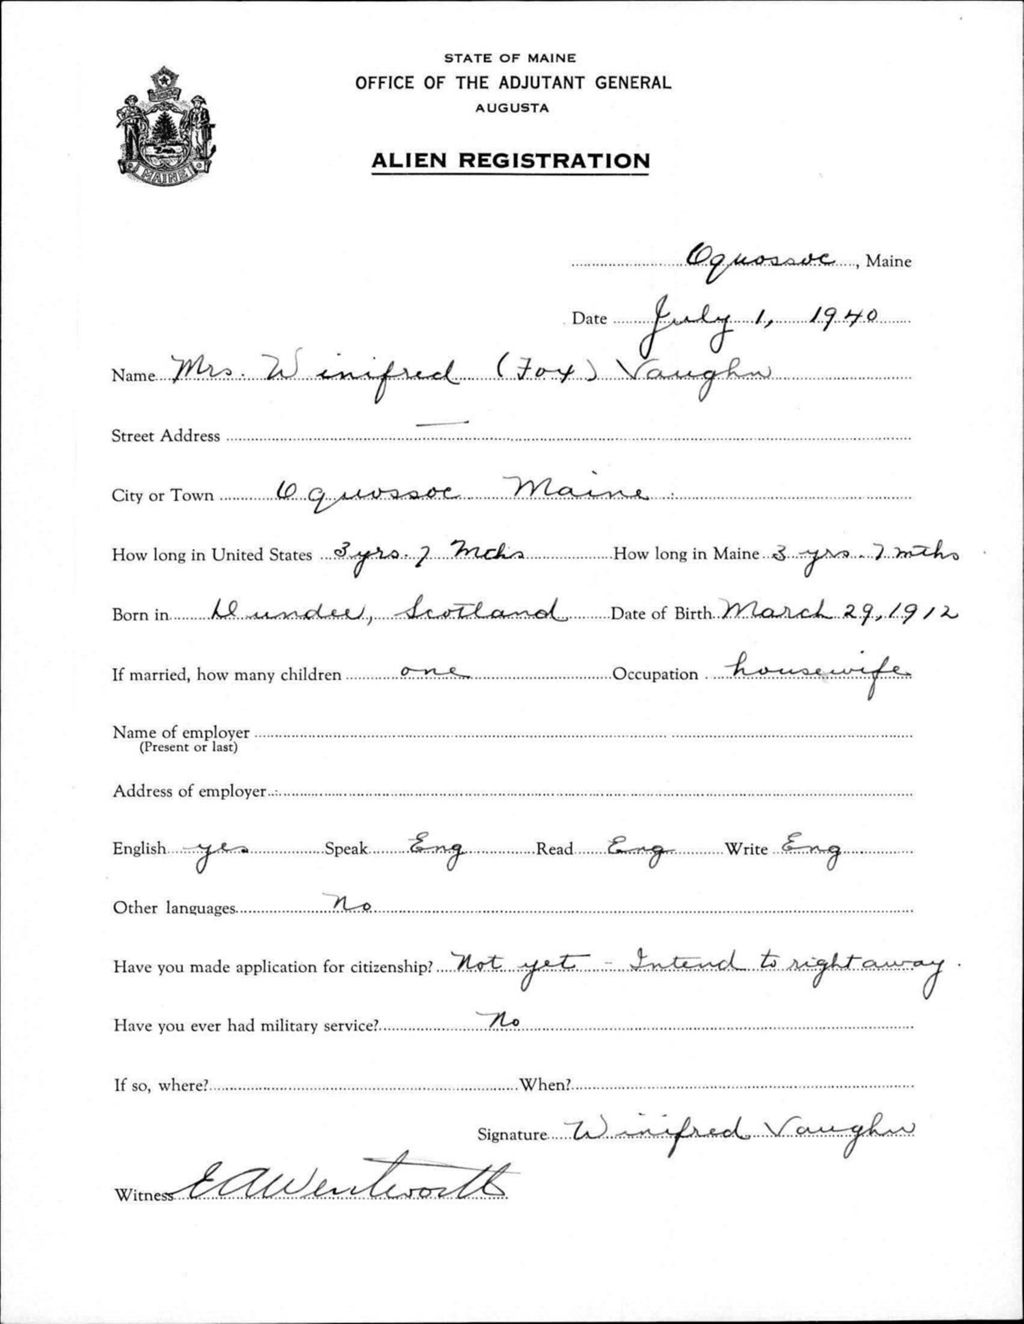 STATE OF MAINE
OFFICE OF THE ADJUTANT GENERAL
AUGUSTA
ALIEN REGISTRATION
MAINE
Oquossoc, Maine
Date July 1, 1940
Name Mrs. Winifred (Fox) Vaughn
Street Address —
City or Town Oquossoc Maine
How long in United States 3 yrs. 7 Mths How long in Maine 3 yrs. 7 mths
Born in Dundee, Scotland Date of Birth March 29, 1912
If married, how many children one Occupation housewife
Name of employer
(Present or last)
Address of employer
English yes Speak Eng Read Eng Write Eng
Other languages No
Have you made application for citizenship? Not yet - Intend to right away.
Have you ever had military service? No
If so, where? When?
Signature Winifred Vaughn
Witness E A Wentworth